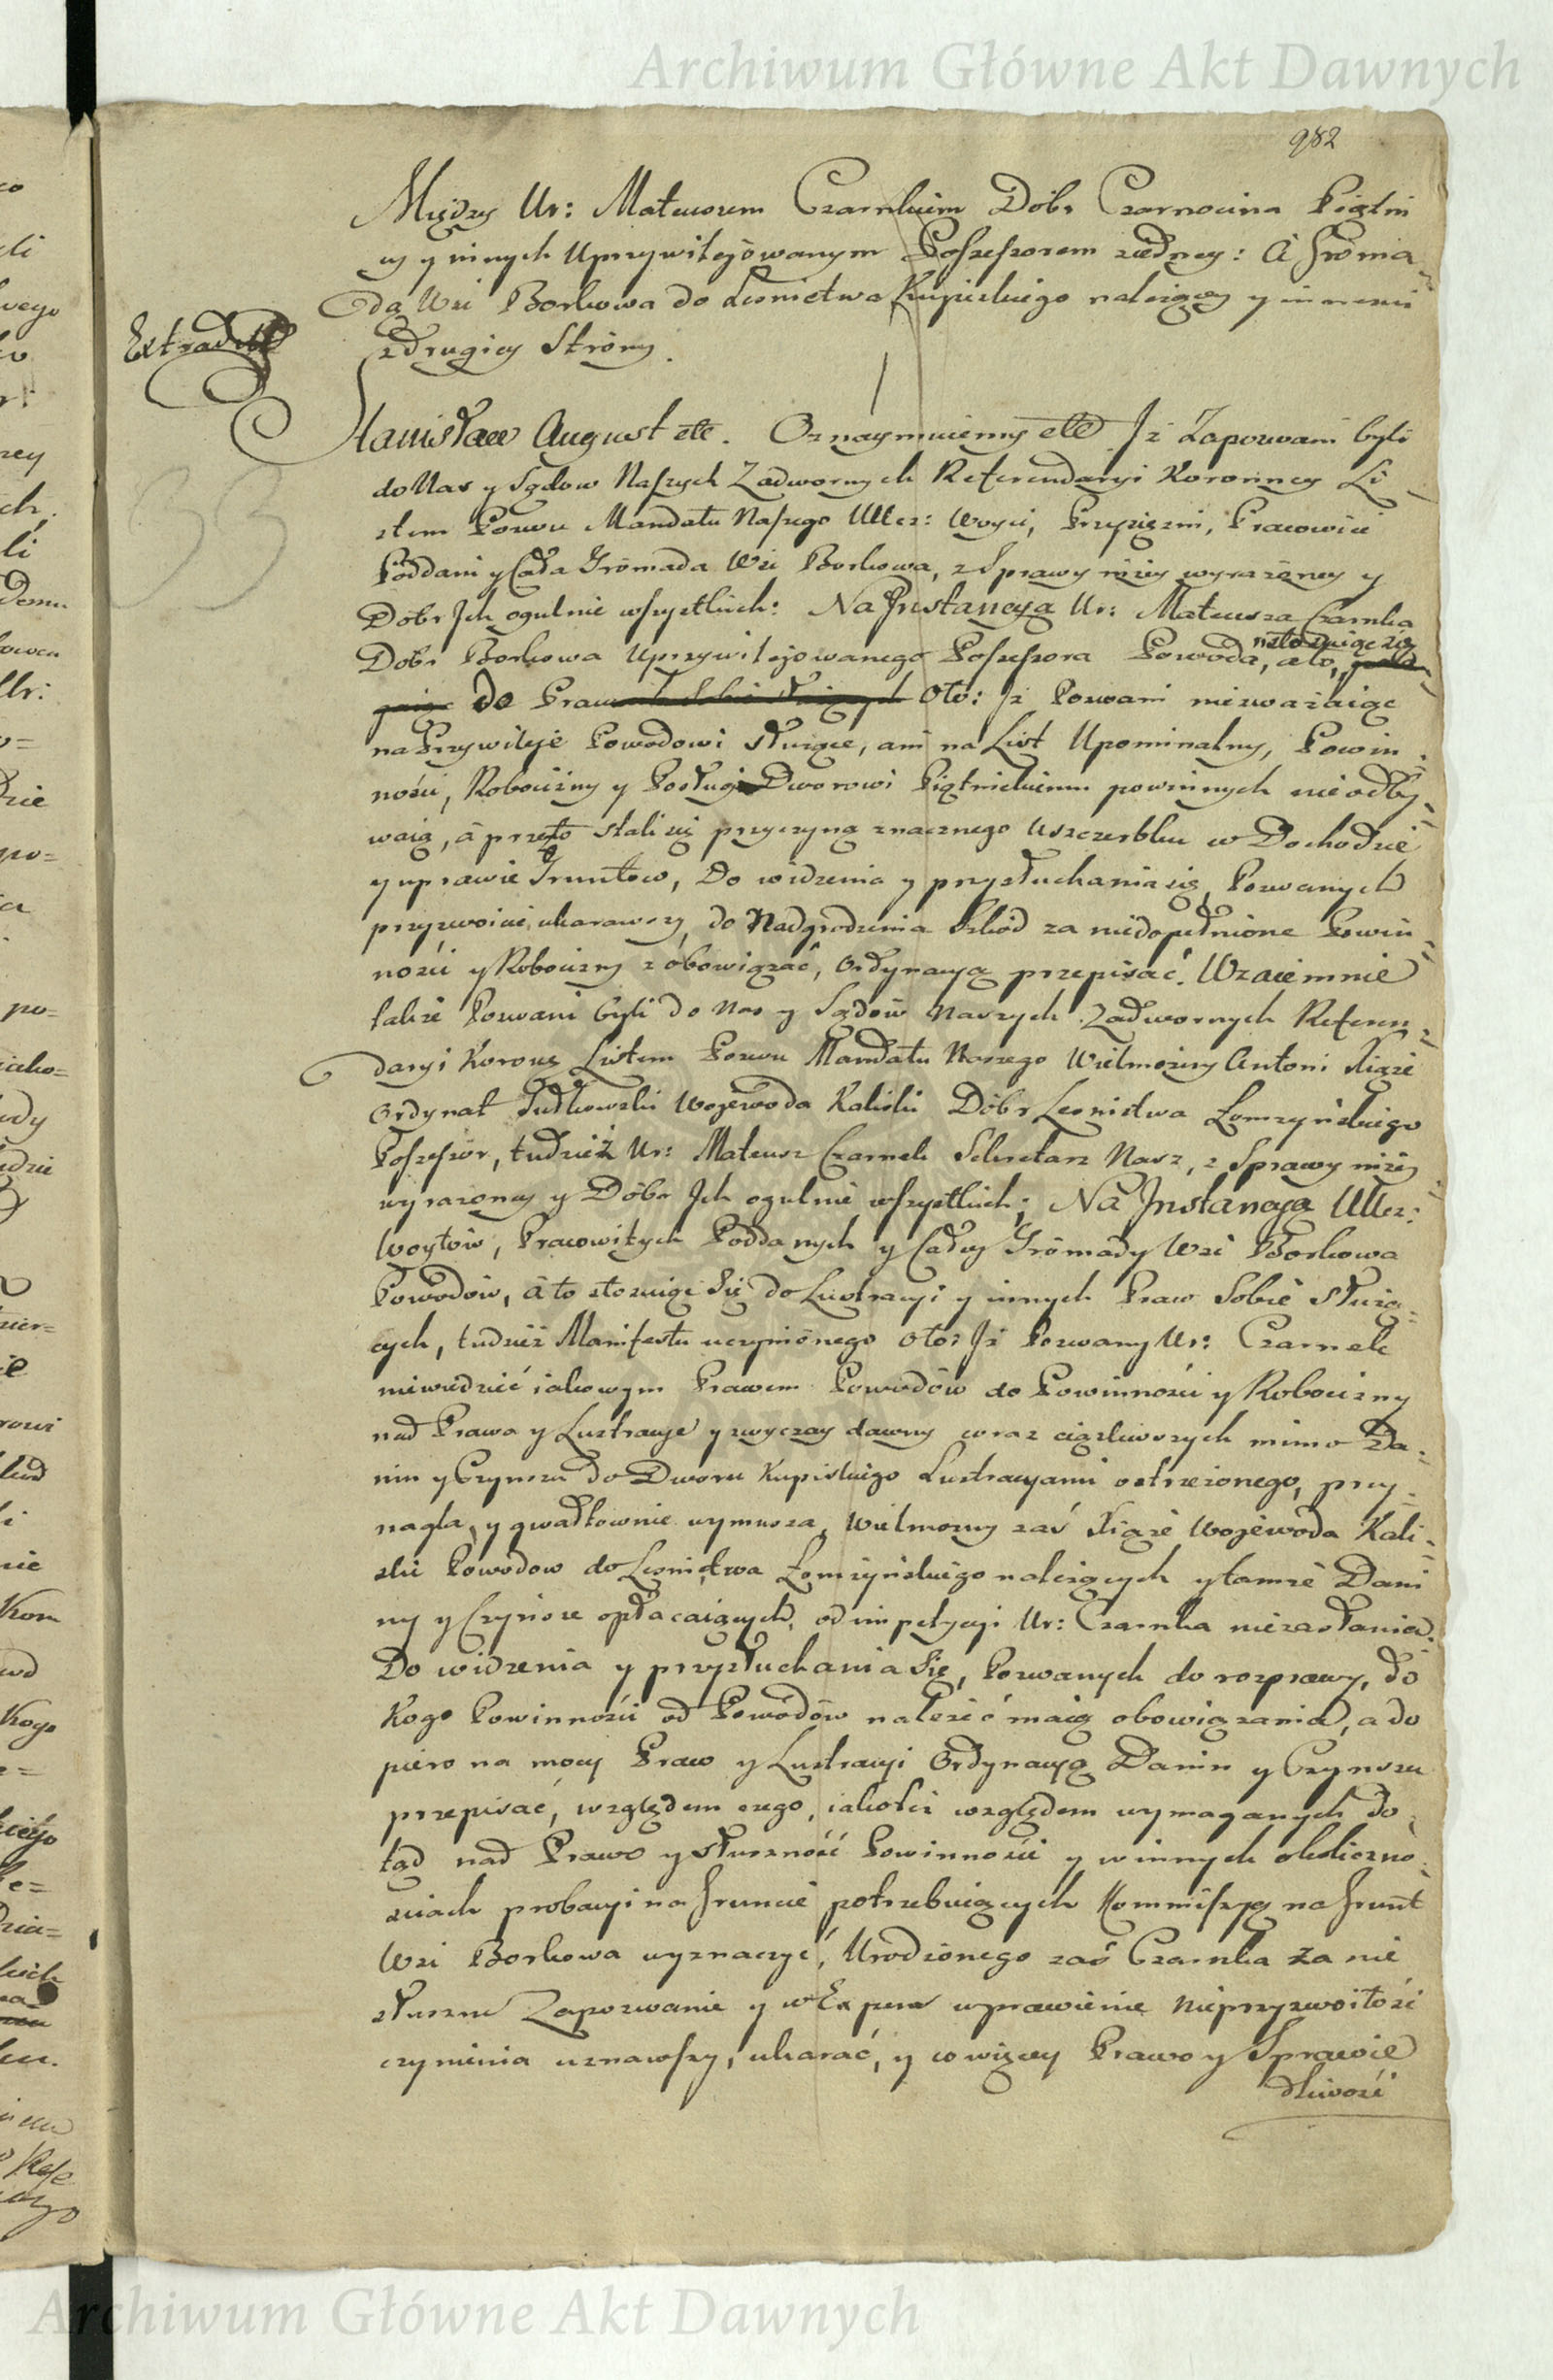 Archiwum Główne Akt Dawnych
982
Między Ur: Mateuszem Czarnkiem Dobr Czarnocina Piątni
cy y innych Uprzywilejowanym Possessorem z iedney: A Groma
dą Wsi Borkowa do Lesnictwa Kupiskiego należącey y innemi
z drugiey Strony.
Extradit
Stanisław August etc. Oznaymuiemy etc Jż Zapozwani byli
do Nas y Sądow Naszych Zadwornych Referendaryi Koronney Li
stem Pozwu Mandatu Naszego UUcz: Woyci, Przysięzni, Pracowici
Poddani y Cała Gromada Wsi Borkowa, z Sprawy niżey wyrażoney y
Dobr Jch ogulnie wszystkich: Na Jnstancyą Ur: Mateusza Czarnka
Dobr Borkowa Uprzywilejowanego Possessora Powoda, a to,
do Praw Oto: Jż Pozwani nie zważaiąc
na Przywileje Powodowi służące, ani na List Upominalny, Powin
ności, Robocizny y Posługi Dworowi Piątnickiemu powinnych nie odby
waią, a przeto stali się przyczyną znacznego Uszczerbku w Dochodzie
y uprawie Gruntow, Do widzenia y przysłuchania się, Pozwanych
przyzwoicie ukarawszy, do Nadgrodzenia Szkod za niedopełnione Powin
ności y Robocizny zobowiązać, Ordynacyą przepisać. Wzaiemnie
także Pozwani byli do Nas y Sądow Naszych Zadwornych Referen
daryi Koroney Listem Pozwu Mandatu Naszego Wielmożny Antoni Xiąże
Ordynat Sułkowski Wojewoda Kaliski Dobr Lesnictwa Łomżyńskiego
Possessor, tudzież Ur: Mateusz Czarnek Sekretarz Nasz, z Sprawy niżey
wyrażoney y Dobr Jch ogulnie wszystkich; Na Jnstancyą UUcz:
Woytow, Pracowitych Poddanych y Całey Gromady Wsi Borkowa
Powodow, a to stosuiąc Się do Lustracyi y innych Praw Sobie służą
cych, tudzież Manifestu uczynionego Oto: Jż Pozwany Ur: Czarnek
niewiedzieć iakowym Prawem Powodow do Powinności y Robocizny
nad Prawa y Lustracye y zwyczay dawny coraz ciązliwszych mimo Da
nin y Czynszu do Dworu Kupiskiego Lustracyami ostrzeżonego, przy
nagla, y gwałtownie wymusza, Wielmożny zaś Xiąże Wojewoda Kali
ski Powodow do Lesnictwa Łomżyńskiego należących y tamże Dani
ny y Czynsze opłacaiących, od impetycyi Ur: Czarnka niezasłania.
Do widzenia y przysłuchania Się, Pozwanych do rozprawy, do
Kogo Powinności od Powodow należeć maią obowiązania, a do
piero na mocy Praw y Lustracyi Ordynacyą Danin y Czynszu
przepisać, względem czego, iakoteż względem wymaganych do
tąd nad Prawo y słuszność Powinności y w innych okoliczno
ściach probacyi na Gruncie potrzebuiących Kommissyą na Grunt
Wsi Borkowa wyznaczyć, Urodzonego zaś Czarnka za nie
słuszne Zapozwanie y w Expens wprawienie Nieprzyzwoitość
czynienia uznawszy, ukarać, y co więcey Prawo y Sprawie
dliwość
Archiwum Główne Akt Dawnych